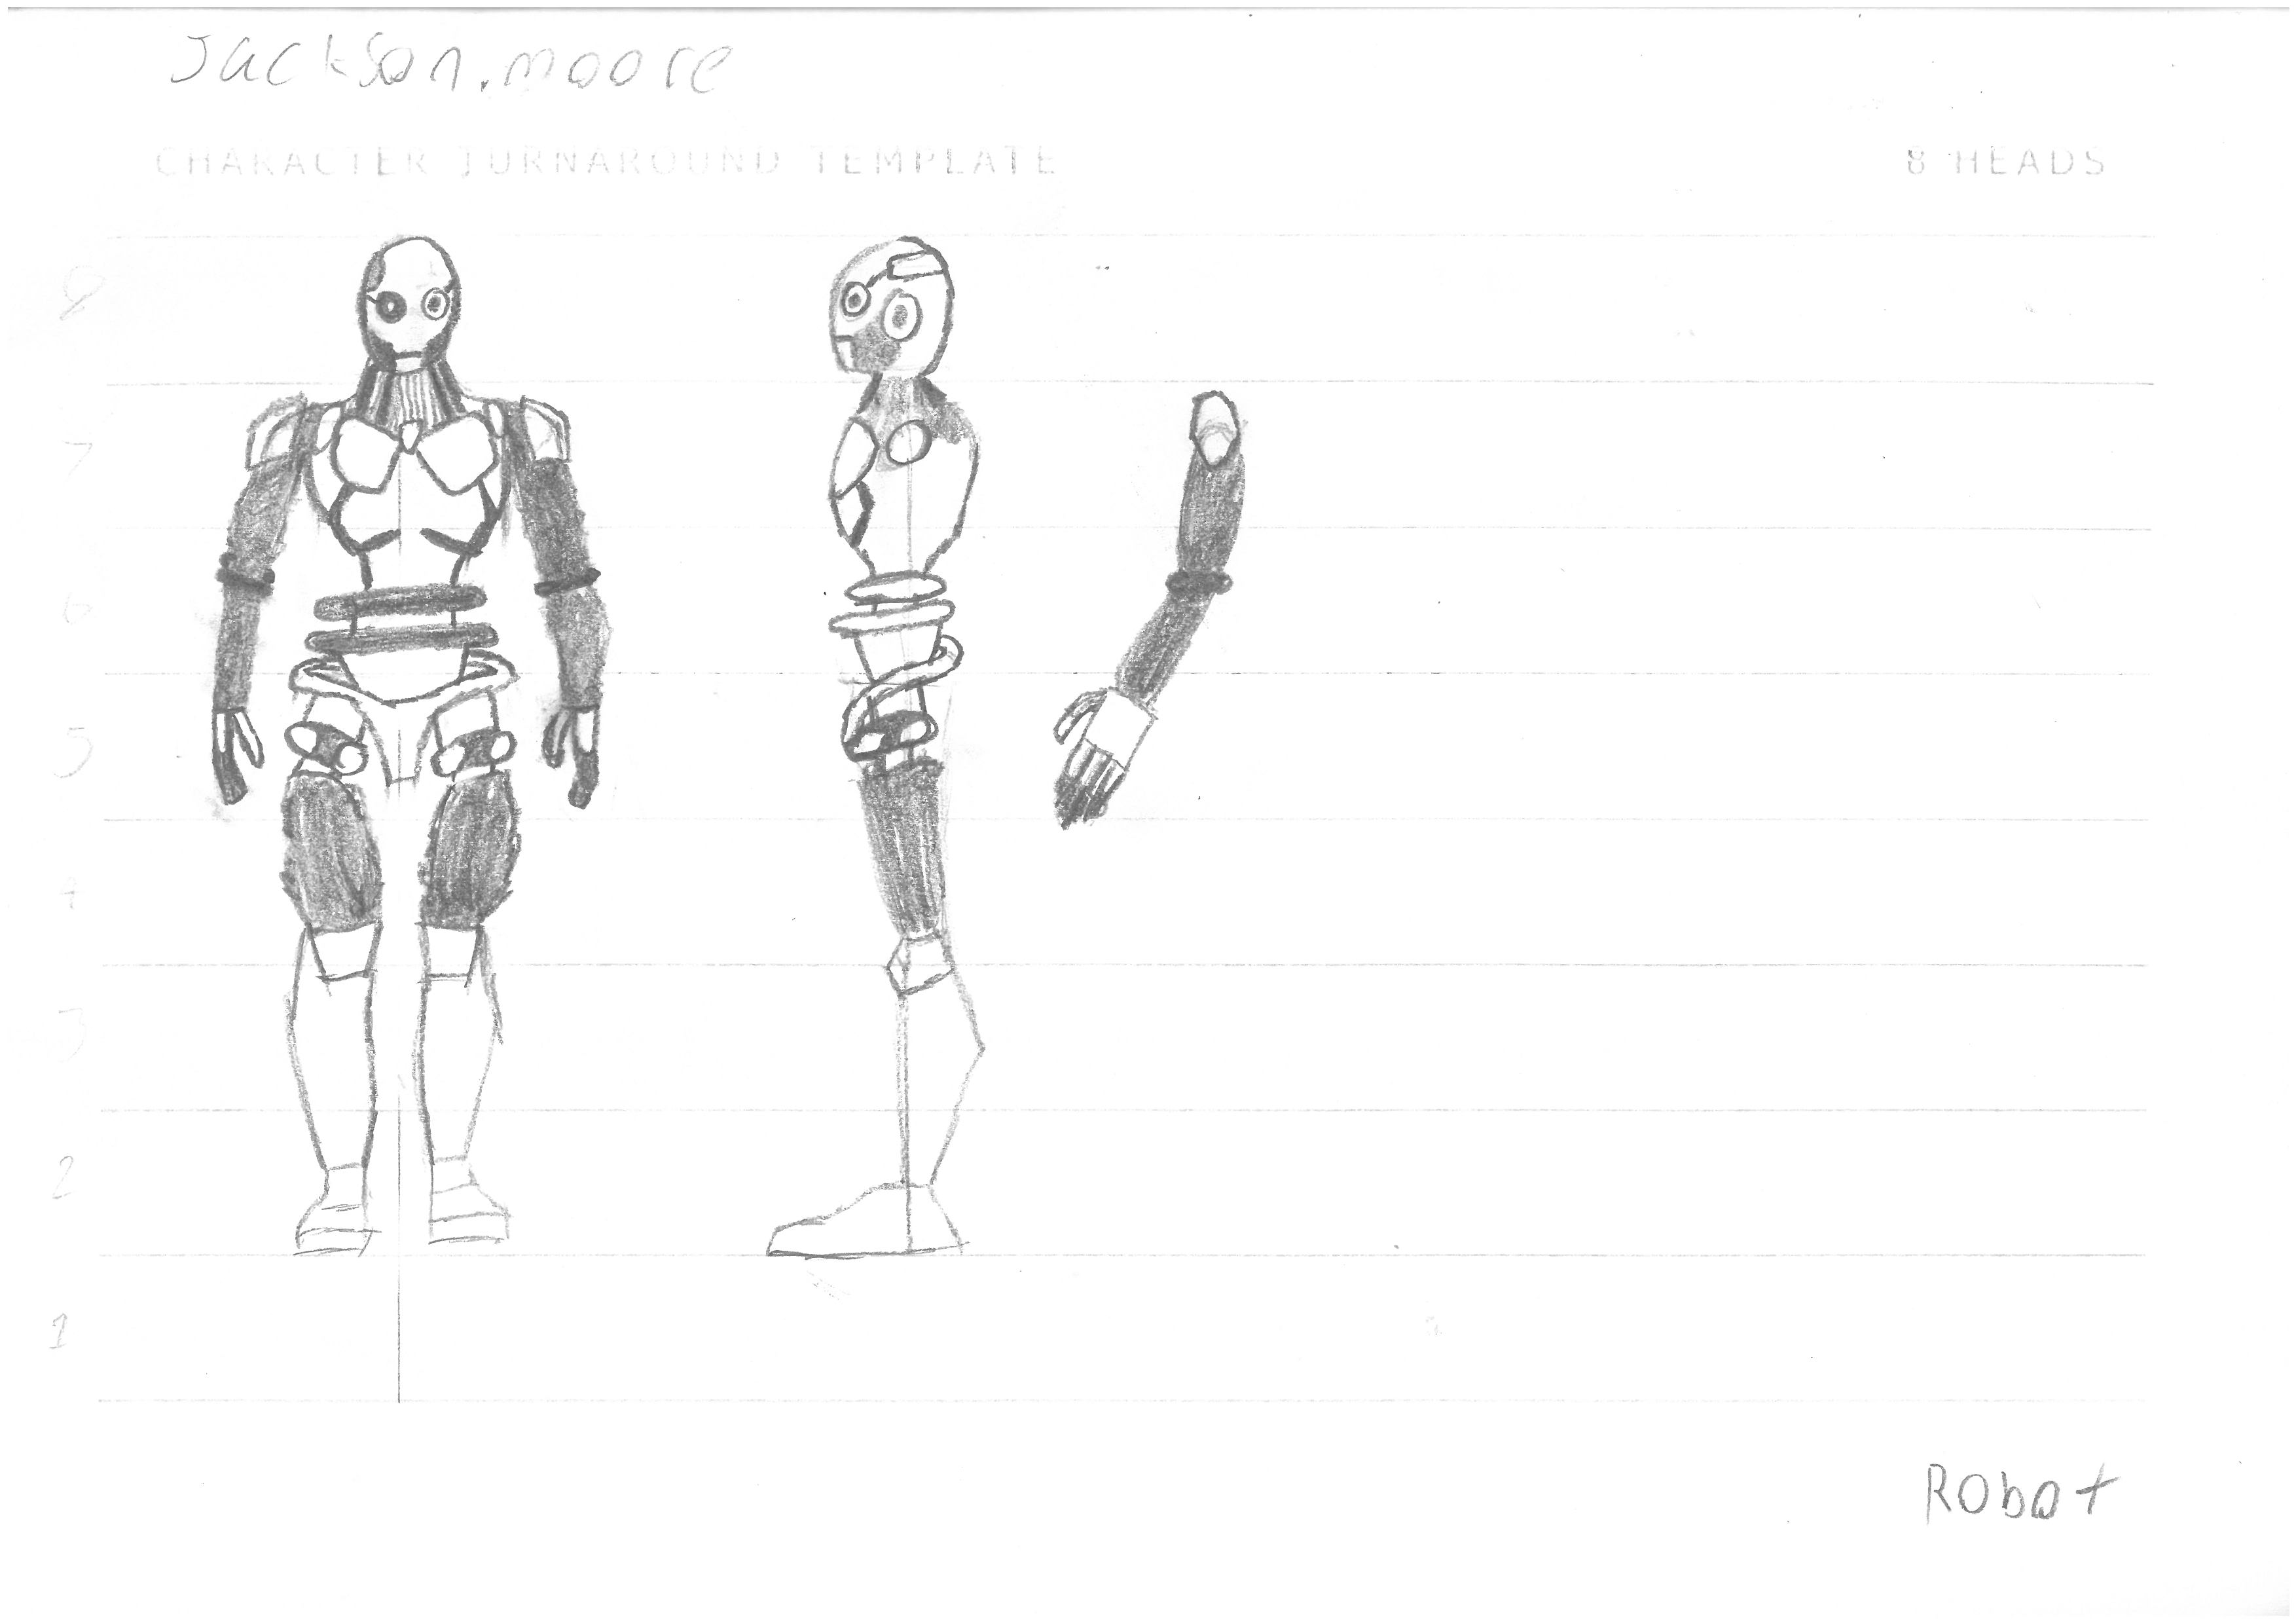 Jackson.moore
CHARACTER TURNAROUND TEMPLATE
8 HEADS
8
7
6
5
4
3
2
1
Robot